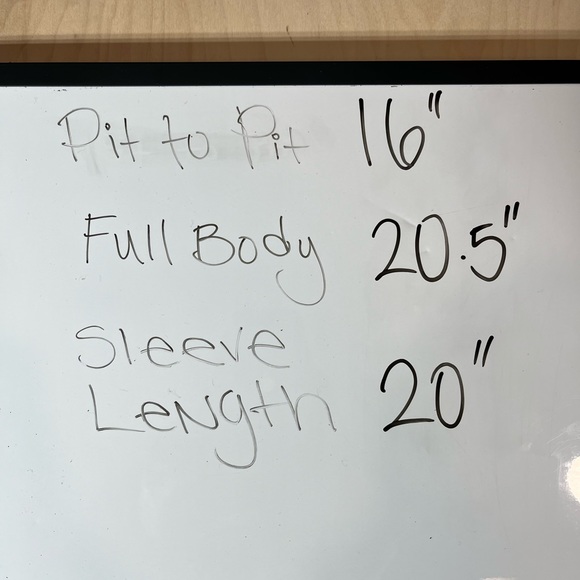 Pit to Pit 16"
Full Body 20.5"
Sleeve
Length 20"